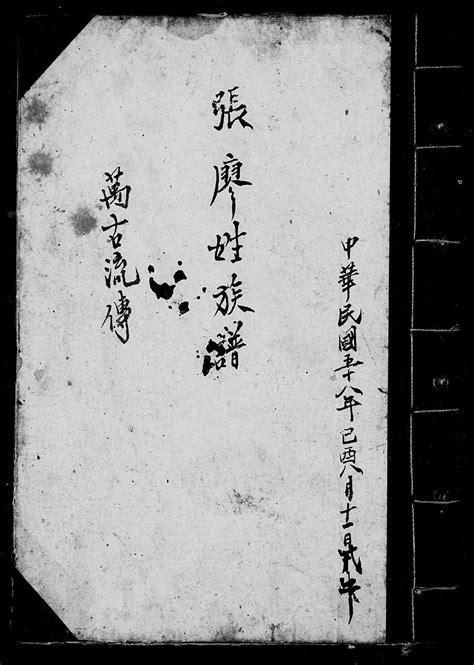 中華民國五十八年己酉八月十一日
張廖姓族譜
萬古流傳